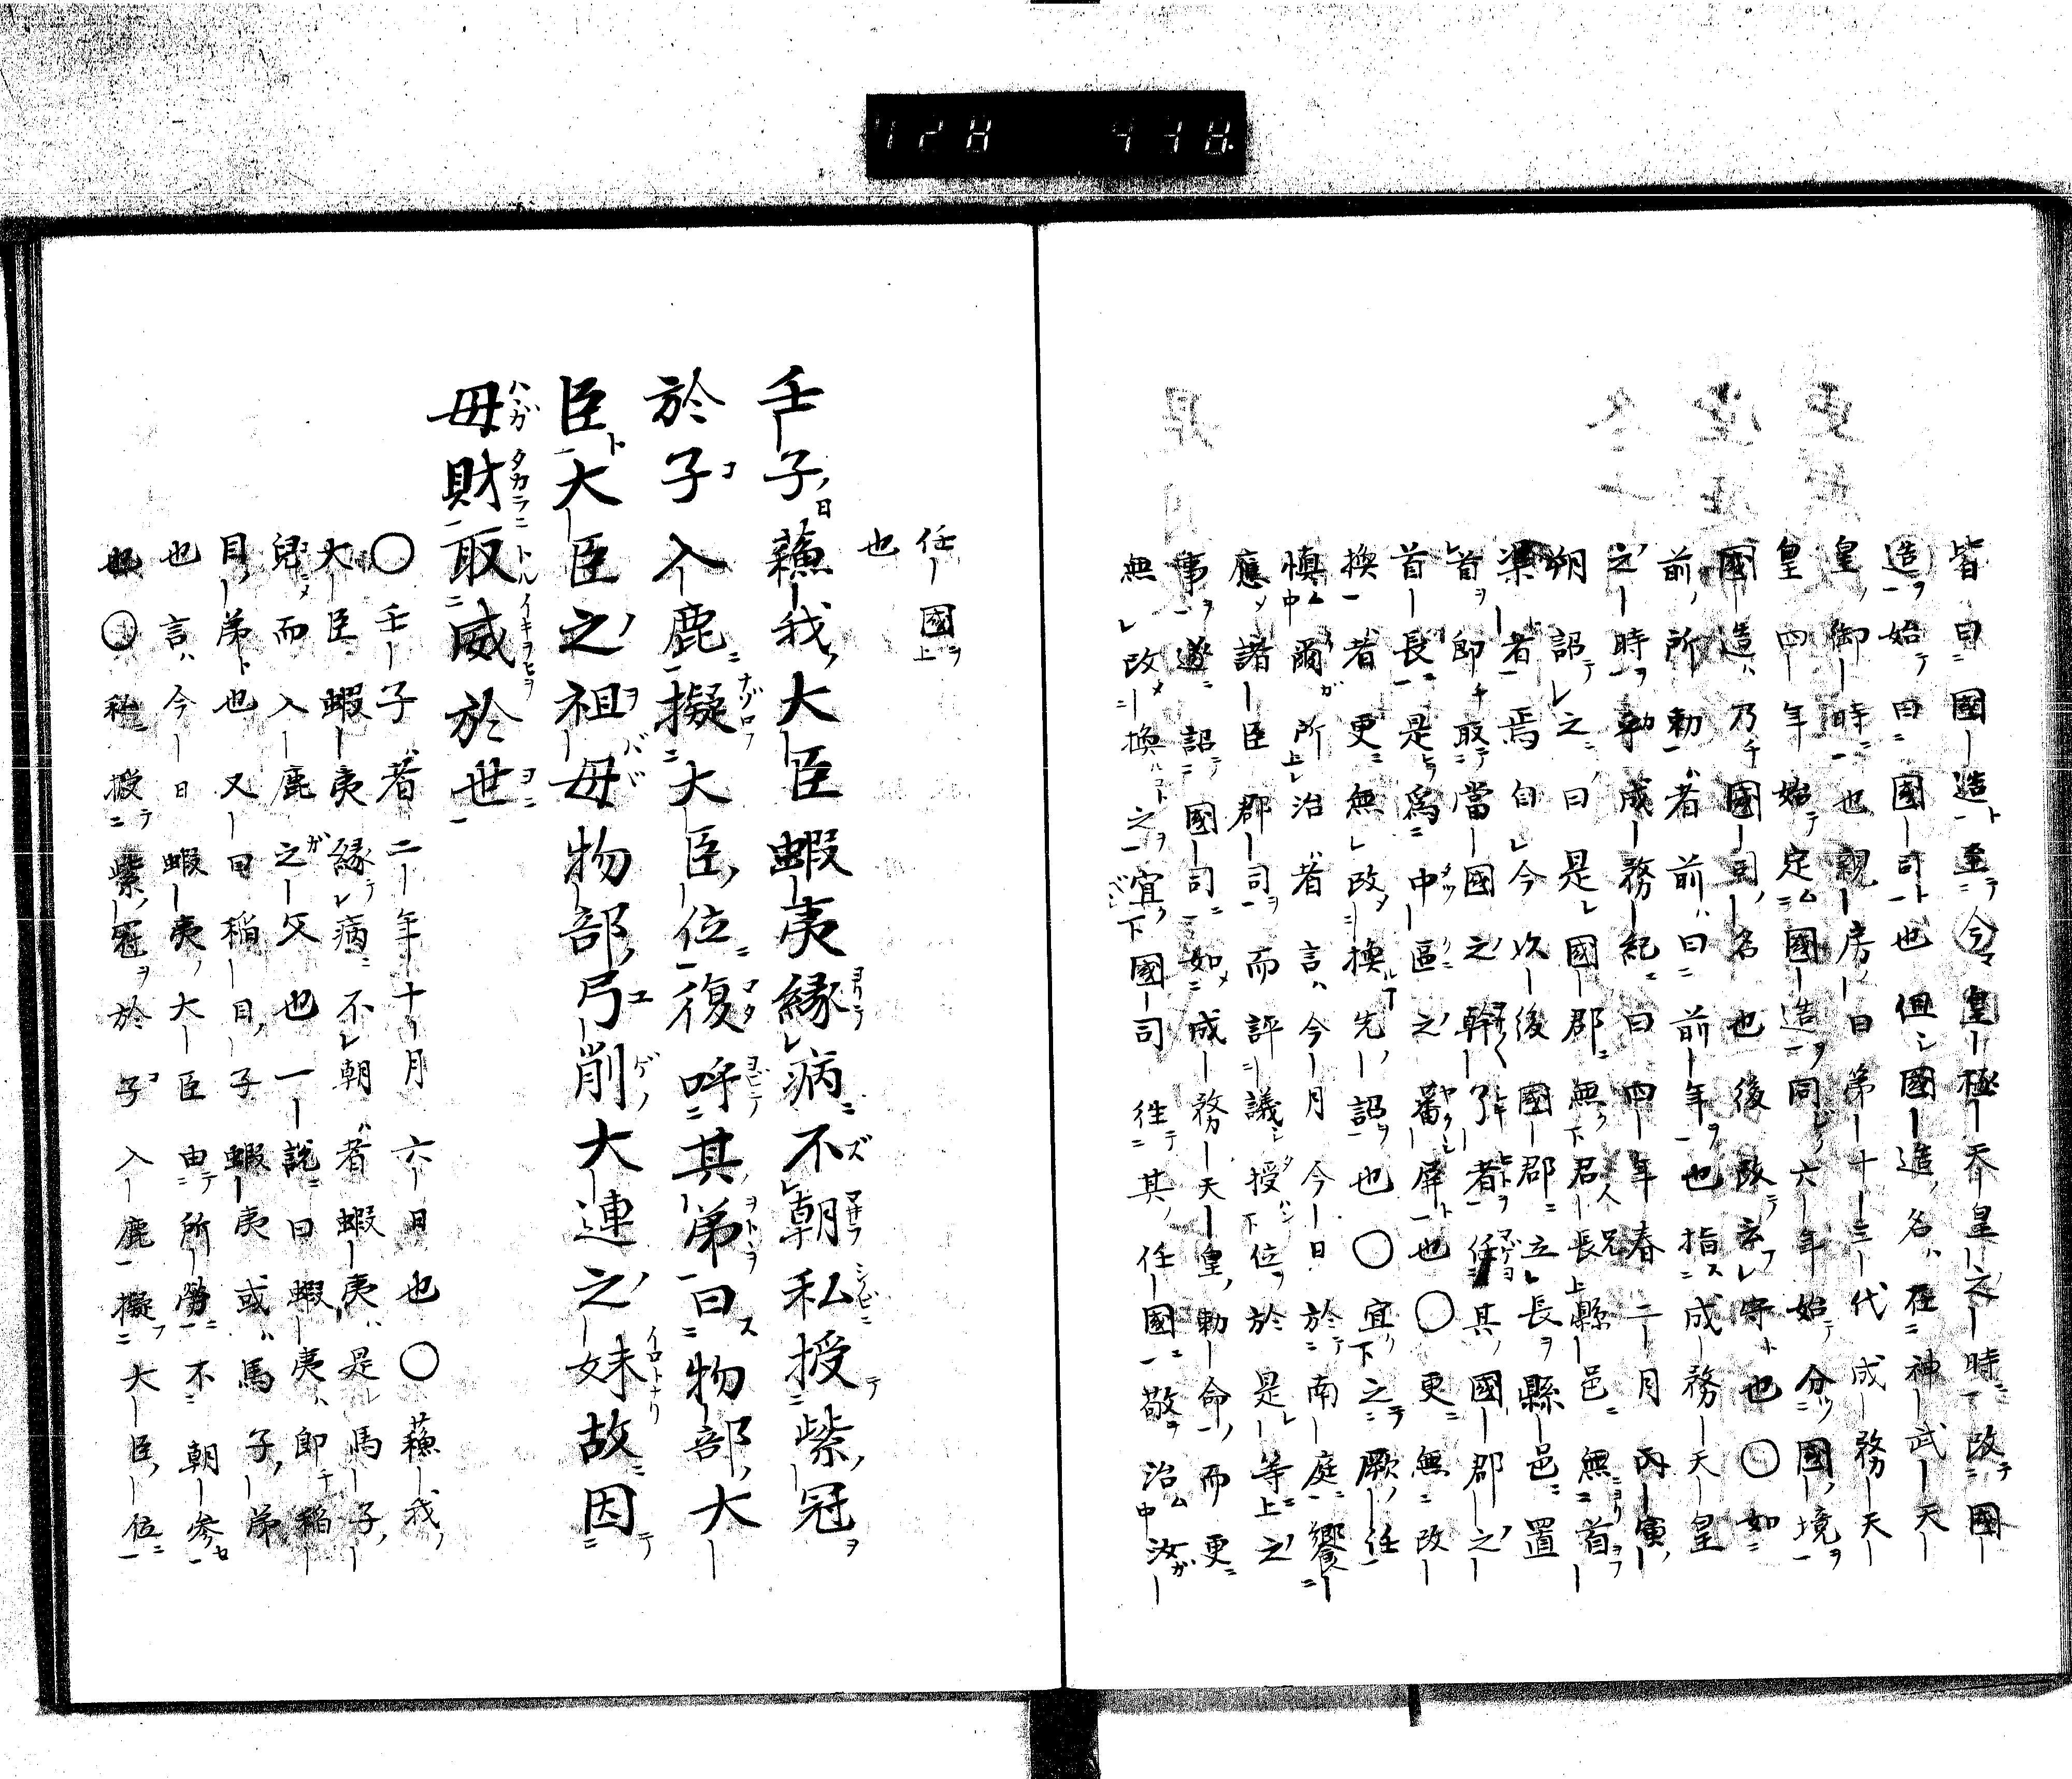 皆曰國造至今皇極天皇之時改國
造始曰國司也但シ國造名在神武天
皇御時也親房曰第十三代成務天
皇四年始定國造同六年始分國境
國造乃國司名也後改云守也〇如
前所勅者前曰前年也指成務天皇
之時勅成務紀曰四年春二月丙寅
朔詔之曰是國郡無君長縣邑無首
渠者焉自今以後國郡立長縣邑置
首即取當國之幹了者任其國郡之
首長是爲中區之蕃屏也〇更無改
換者更無改換先詔也〇宜之厥任
慎爾所治者言今月今日於南庭饗
應諸臣郡司而評議授位於是等之
事遂詔國司如成務天皇勅命而更
無改換之宜國司徃其任國敬治汝
任國
也
壬子蘓我大臣蝦夷縁病不朝私授紫冠
於子入鹿擬大臣位復呼其弟曰物部大
臣大臣之祖母物部弓削大連之妹故因
母財取威於世
〇壬子者二年十月六日也〇蘓我
大臣蝦夷縁病不朝者蝦夷是馬子
兒而入鹿之父也一說曰蝦夷即稲
目弟也又曰稲目子蝦夷或馬子弟
也言今日蝦夷大臣由所勞不朝參
也〇私授紫冠於子入鹿擬大臣位